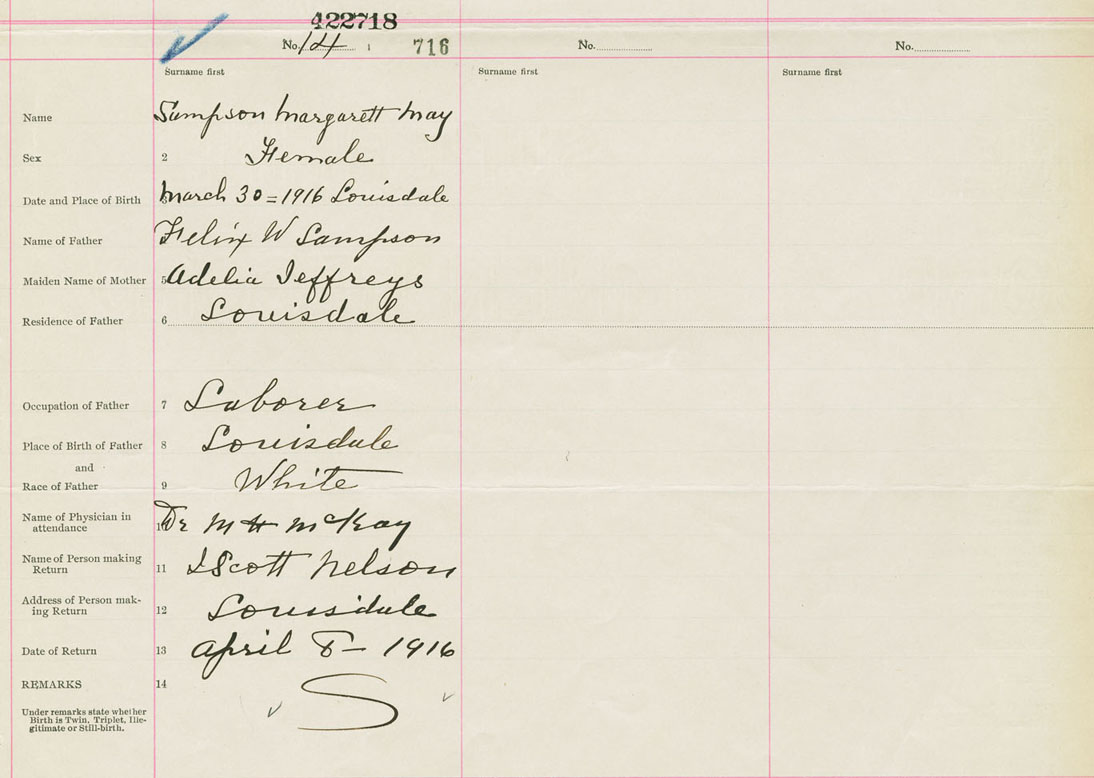 422718
No. 14 716 No. No.
Surname first Surname first Surname first
Name Sampson Margarett May
Sex 2 Female
Date and Place of Birth 3 March 30 = 1916 Louisdale
Name of Father Felix W Sampson
Maiden Name of Mother 5 Adelia Jeffreys
Residence of Father 6 Louisdale
Occupation of Father 7 Laborer
Place of Birth of Father 8 Louisdale
and
Race of Father 9 White
Name of Physician in
attendance 10 Dr M H McKay
Name of Person making
Return 11 J Scott Nelson
Address of Person mak-
ing Return 12 Louisdale
Date of Return 13 April 8 - 1916
REMARKS 14
S
Under remarks state whether
Birth is Twin, Triplet, Ille-
gitimate or Still-birth.